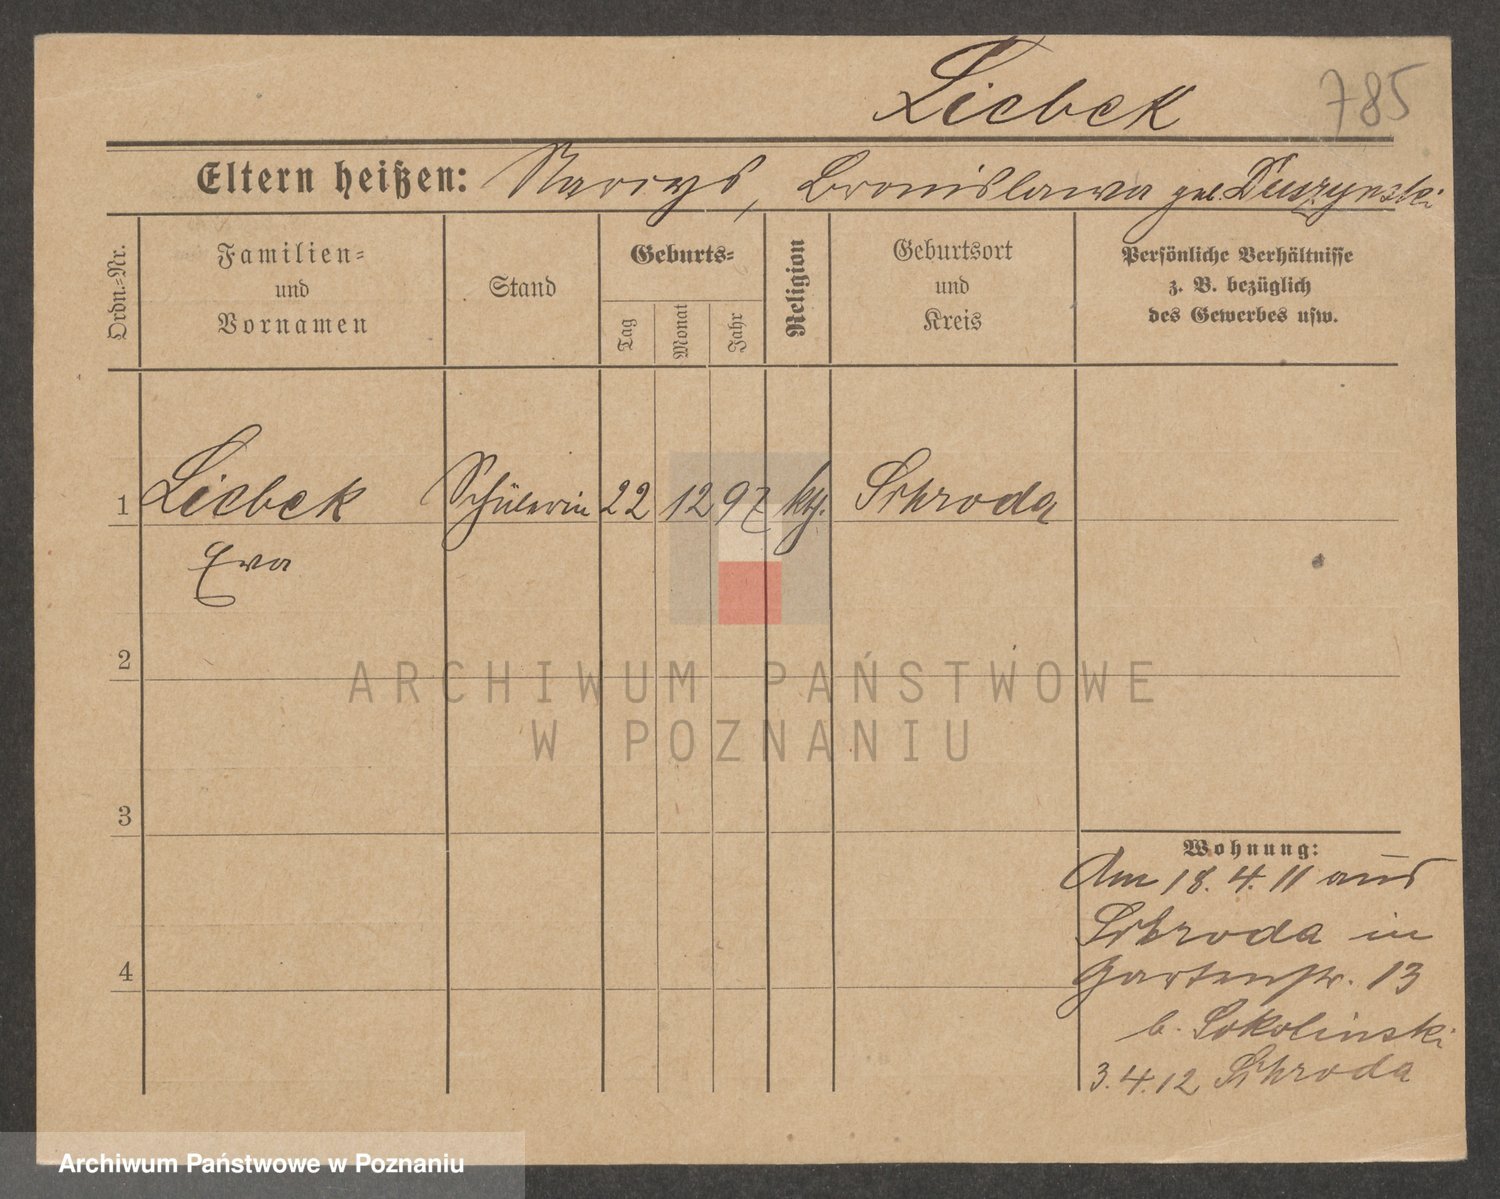 Liebek
785
Eltern heißen: Narcys, Bronislawa geb. Duszynski
Ordn.-Nr.
Familien-
und
Vornamen
Stand
Geburts-
Tag
Monat
Jahr
Religion
Geburtsort
und
Kreis
Persönliche Verhältnisse
z. B. bezüglich
des Gewerbes usw.
1 Liebek Schülerin 22 12 97 kth. Schroda
Eva
2
3
4
Wohnung:
Am 18. 4. 11 aus
Schroda in
Gartenstr. 13
b. Sokolinski
3. 4. 12 Schroda
ARCHIWUM PAŃSTWOWE
W POZNANIU
Archiwum Państwowe w Poznaniu